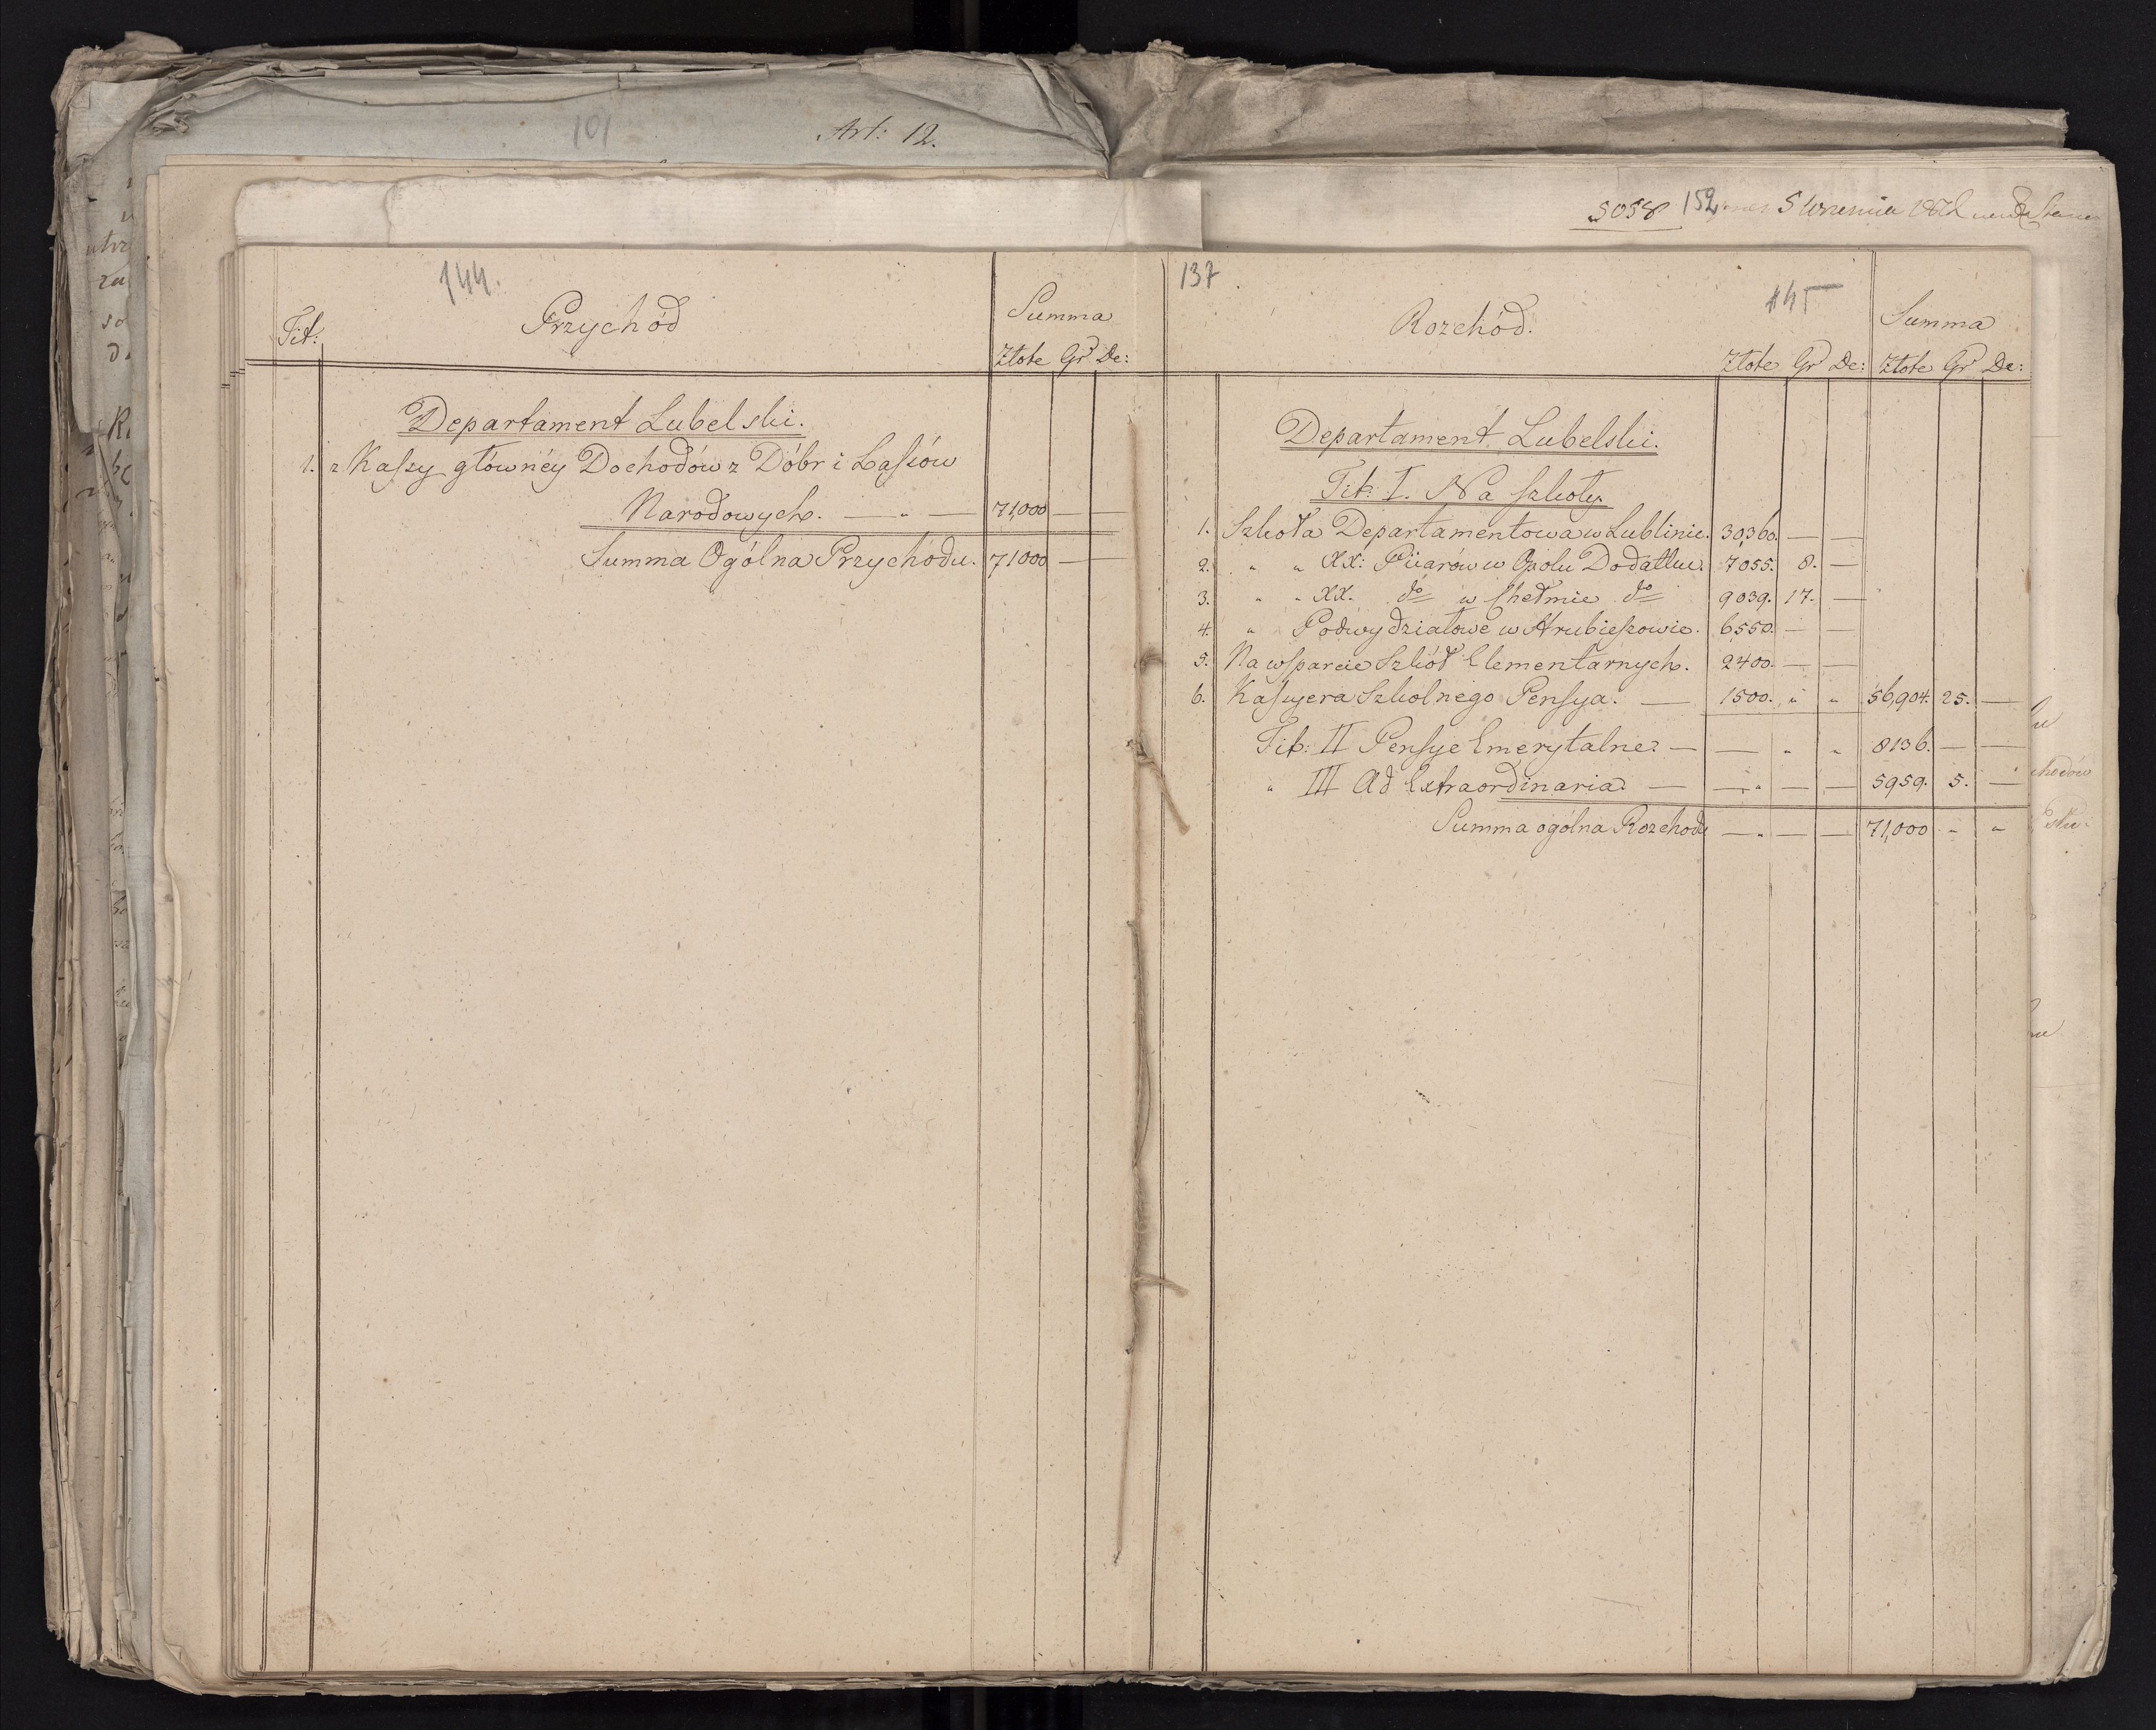 101 Art: 12.
5058 152 5
144.
Tit: Przychód Summa
Złote Gr De:
Departament Lubelski.
1. z Kaſsy głównéy Dochodów z Dóbr i Laſsów
Narodowych. — „ — 71,000 — —
Summa Ogólna Przychodu. 71000 — —
137 145
Rozchód. Summa
Złote Gr De: Złote Gr De:
Departament Lubelski.
Tit: I. Na ſzkoły.
1. Szkoła Departamentowa w Lublinie. 30,360. — —
2. „ „ XX: Piiarów w Opolu Dodatku. 7055. 8. —
3. „ „ XX. do w Chełmie do 9039. 17. —
4. „ Podwydziałowe w Hrubieſzowie. 6550. — —
5. Na wſparcie Szkół Elementarnych. 2400. — —
6. Kaſsyera Szkolnego Penſya. — 1500. „ „ 56,904. 25. —
Tit: II Penſye Emerytalne. — — „ „ 8136. — —
„ III Ad Extraordinaria. — — „ — — 5959. 5. —
Summa ogólna Rozchodu — „ — — 71,000 „ „